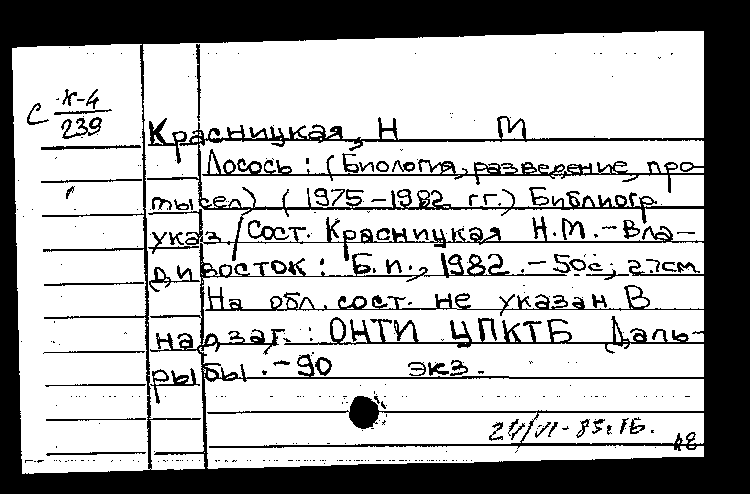 С Ж-4
239
Красницкая, Н М
Лосось : (Биология, разведение, про-
мысел) (1975-1982 г.г.) Библиогр.
указ. / Сост. Красницкая Н.М. - Вла-
дивосток : Б.и., 1982. - 50с; 27см
На обл. сост. не указан В
надзаг. : ОНТИ ЦПКТБ Даль-
рыбы. - 90 экз.